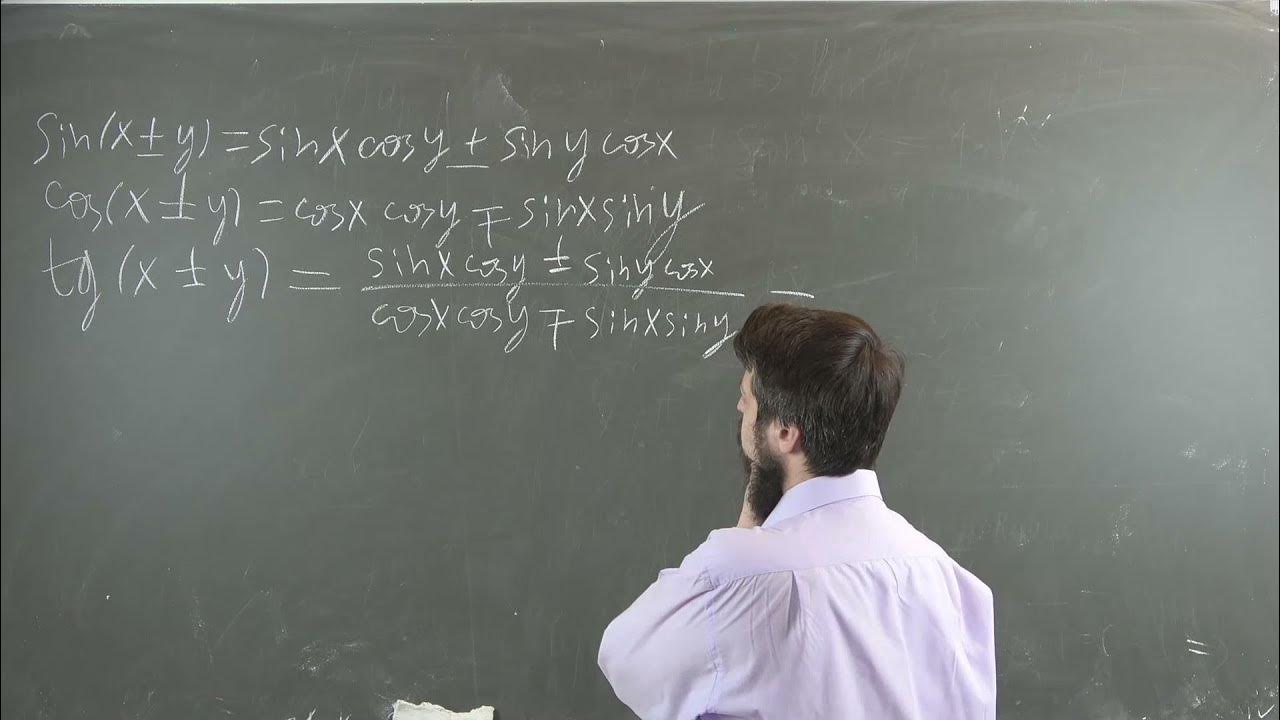 sin(x ± y) = sin x cos y ± sin y cos x
cos(x ± y) = cos x cos y ∓ sin x sin y
tg(x ± y) = (sin x cos y ± sin y cos x) / (cos x cos y ∓ sin x sin y) =